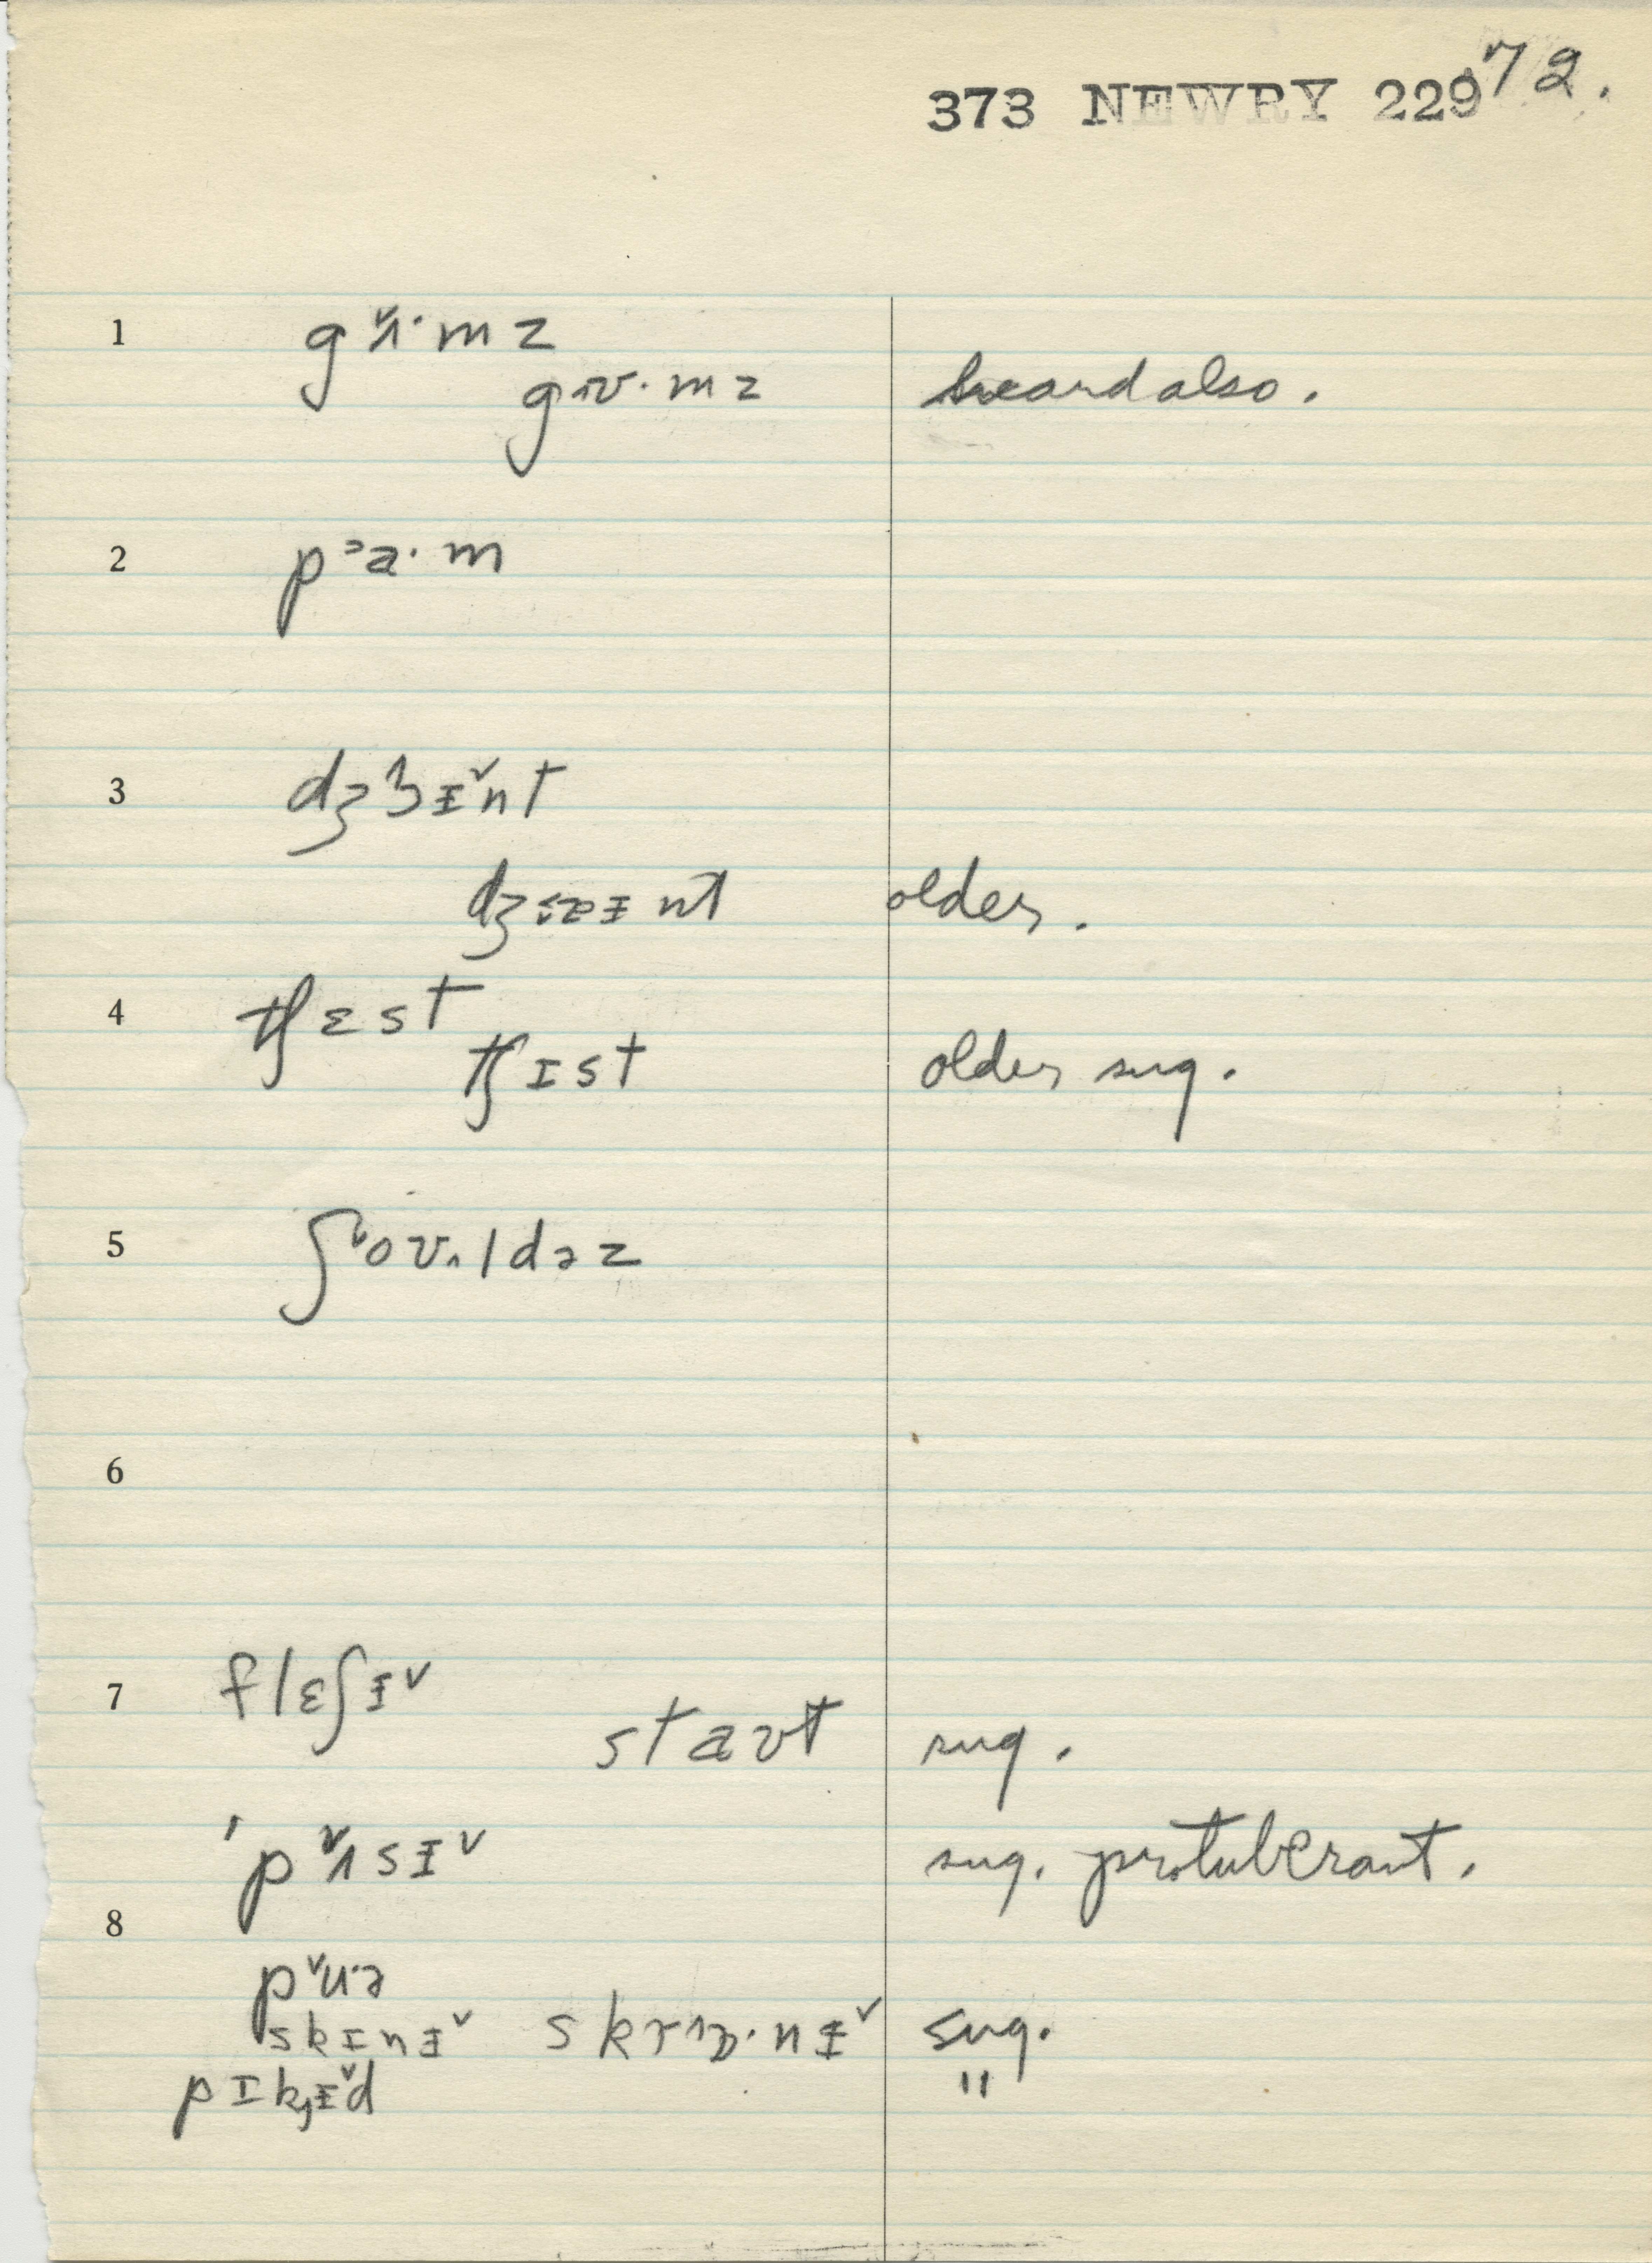 373 NEWRY 229 72.
1 gʌ̌·mz
gɪʊ·mz heard also.
2 pᵊa·m
3 dʒɜɨ̌nt
dʒɐɨnt older.
4 tʃɛst
tʃɪst older sug.
5 ʃoʊ·ldəz
6
7 flɛʃɨˇ
staʊt sug.
ˈpʌ̌sɨˇ sug. protuberant.
8
pˇuə
skɪnɨˇ skrɒ·nɨˇ sug.
pɪkɨ̌d "